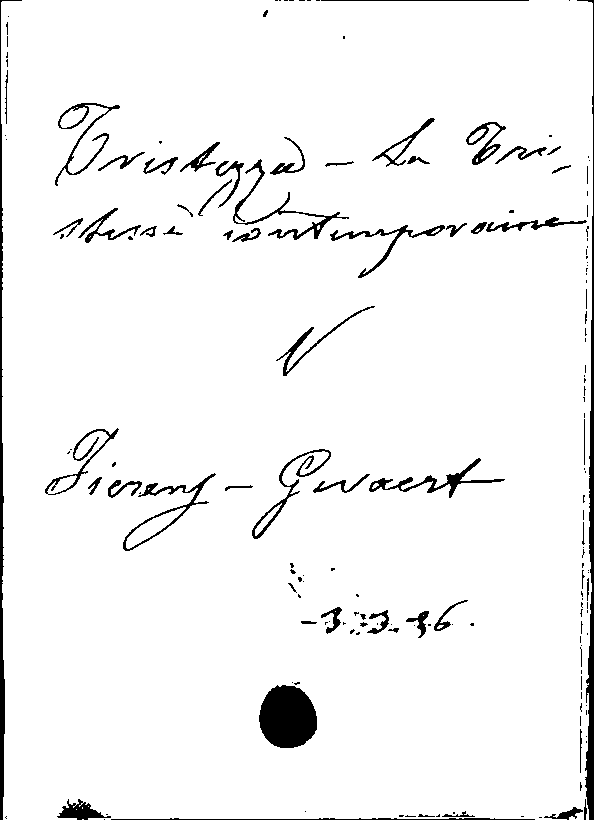 Tristezza - La Tri-
stesse contemporaine
V
Fierens - Gevaert
-3.3.36.